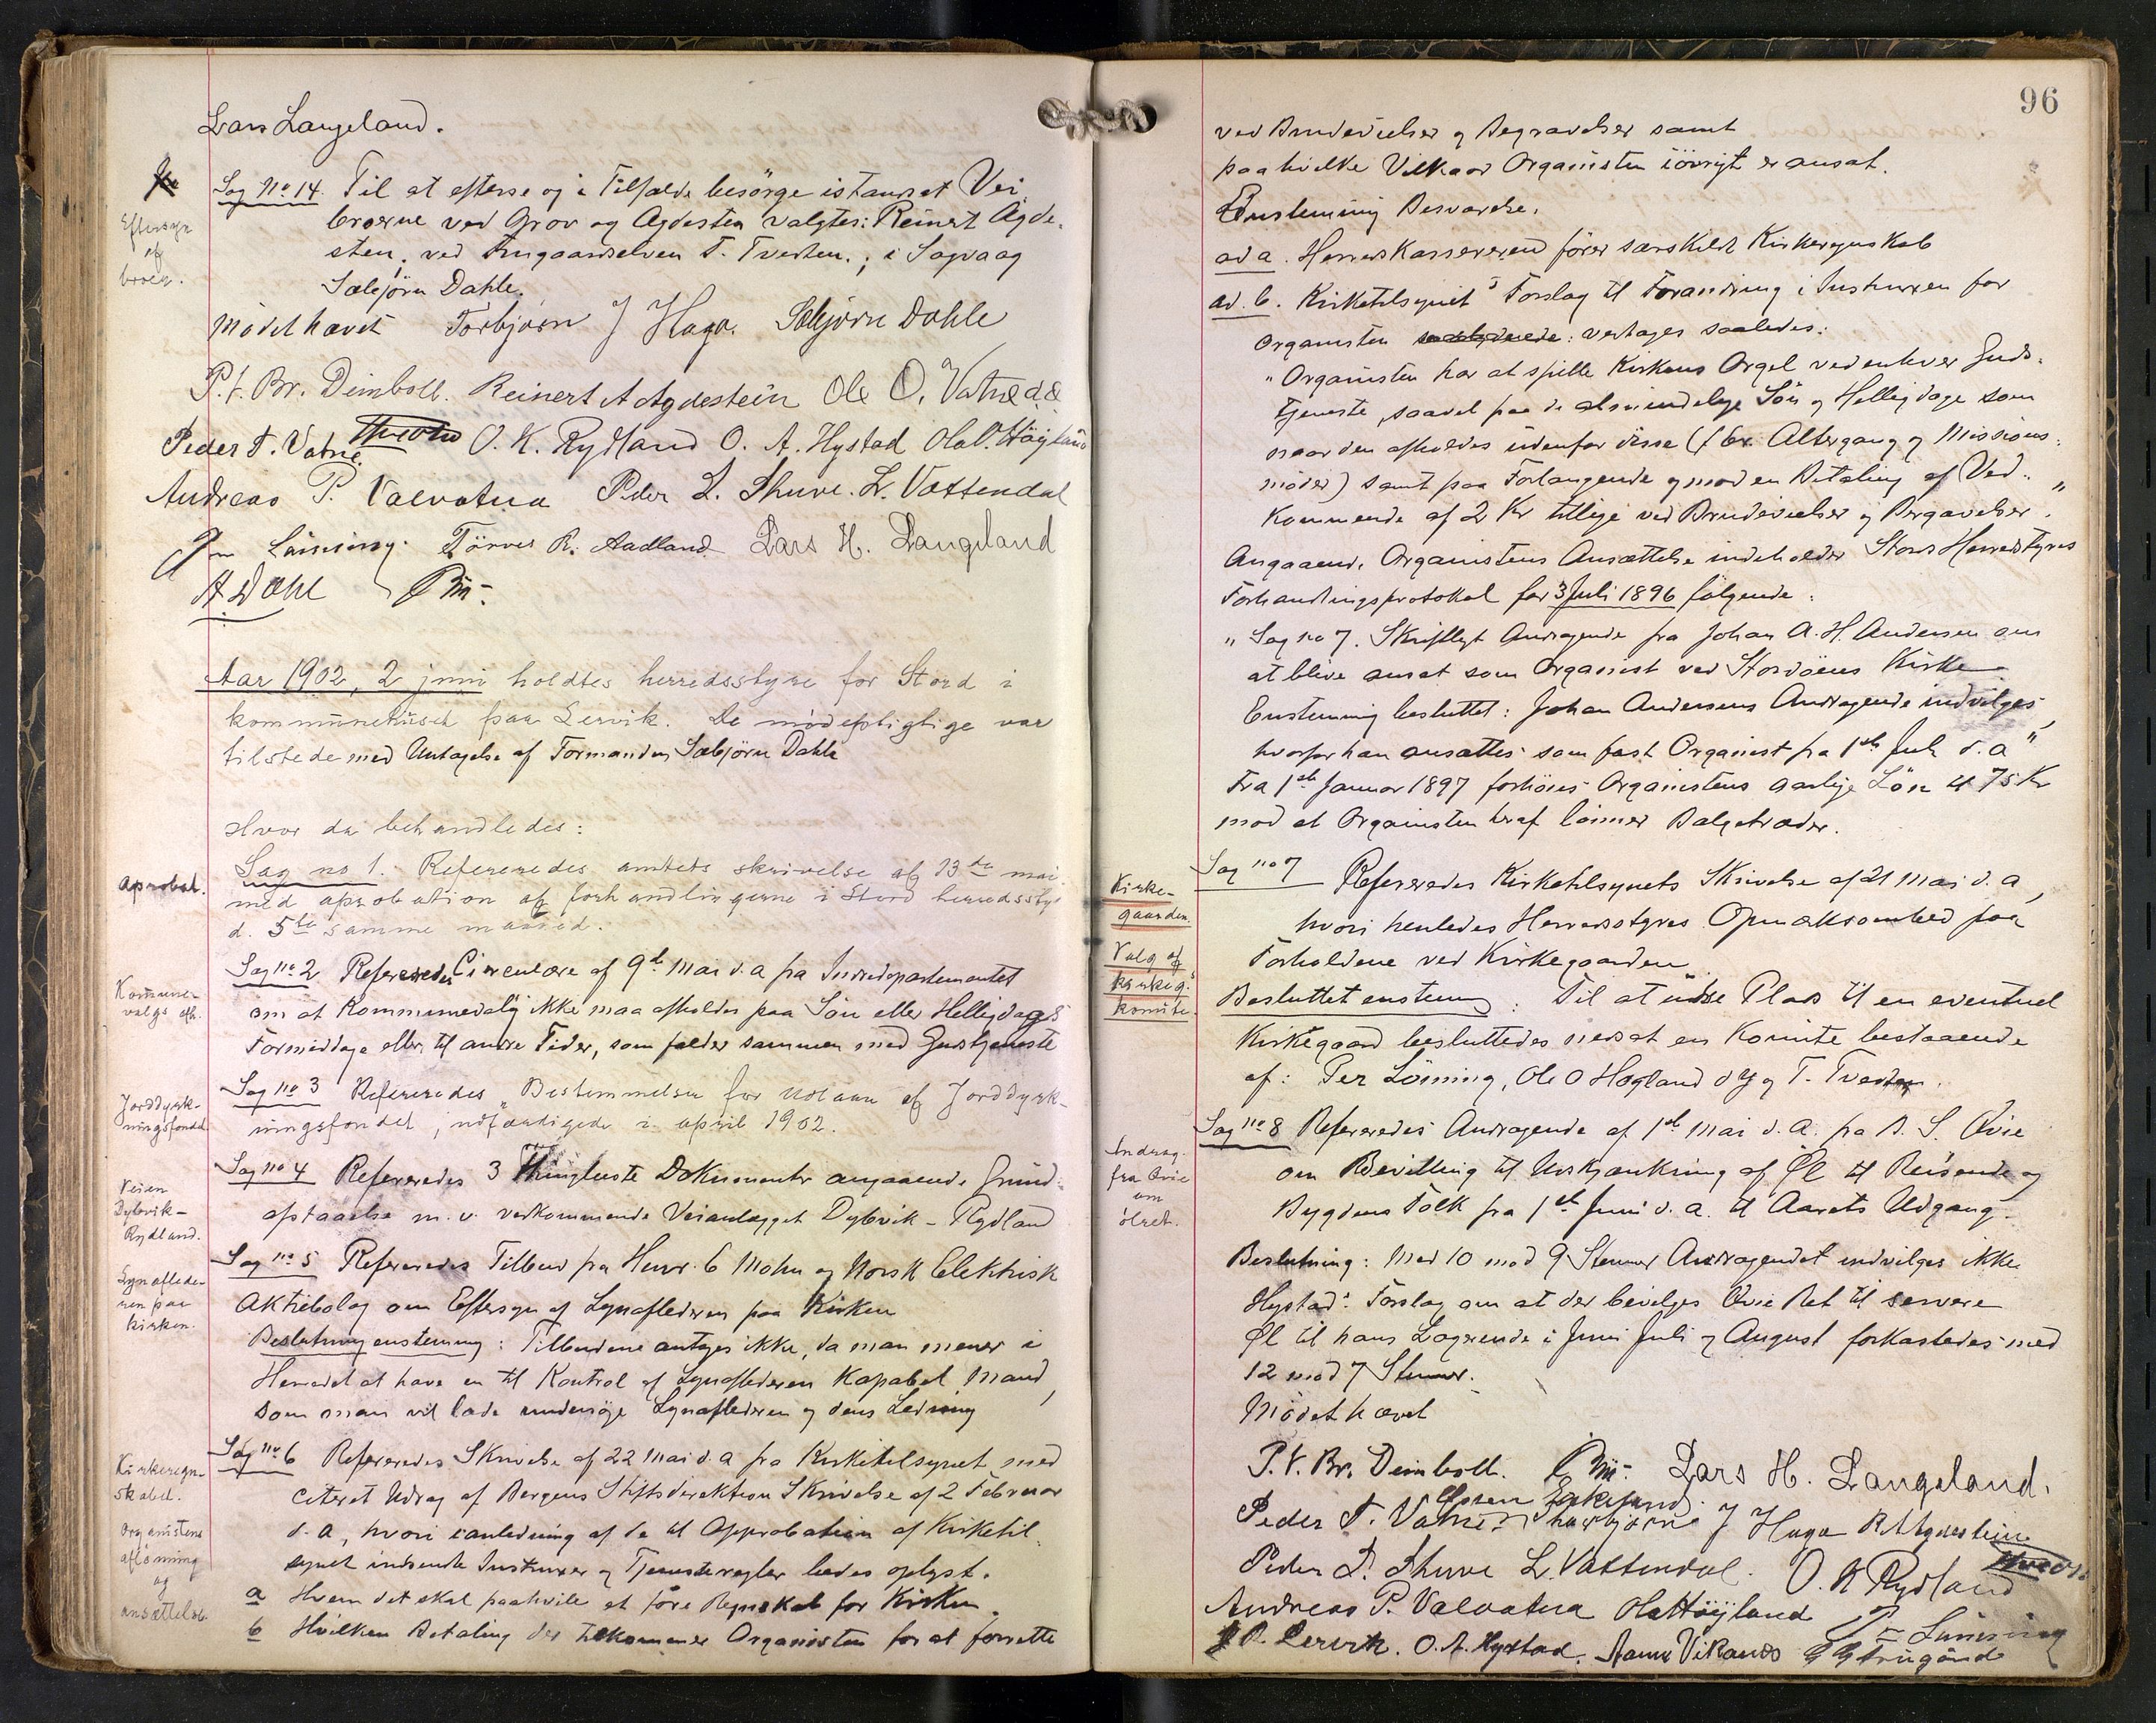 Lars Langeland.
Eftersyn
af
broer.
Sag No 14. Til at efterse og i Tilfælde besörge istandsat Vei
broerne ved Grov og Agdesten valgtes: Reinert Agde-
sten; ved Frugaardselven T. Tveiten.; i Sagvaag
Sæbjörn Dahle.
Mödet hævet Torbjörn J Haga. Sæbjörn Dahle
P. t. Br. Deinboll. Reinert A Agdestein Ole O. Vatne
Peder T. Vatne. O. K. Rydland O. A. Hystad Ola O. Höyland
Andreas P. Valvatna Peder L. Thuve. L. Vattendal
Lönning. Törres R. Aadland Lars H. Langeland
A Dahl
Aar 1902, 2 juni holdtes herredsstyre for Stord i
kommunehuset paa Lervik. De mødepligtige var
tilstede med Untagelse af Formanden Sæbjörn Dahle
Hvor da behandledes:
Aprobat.
Sag no 1. Refereredes amtets skrivelse af 13de mai
med aprobation af forhandlingerne i Stord herredssty
d. 5te samme maaned.
Kommune-
valgs afh.
Sag no 2 Refereredes Circulære af 9de Mai d. a fra Indredepartementet
om at Kommunevalg ikke maa afholdes paa Sön eller Helligdages
Formiddage eller til andre Tider, som falder sammen med Gudstjeneste
Jorddyrk-
ningsfondet
Sag no 3 Refereredes "Bestemmelser for Udlaan af Jorddyrk-
ningsfondet, udfærdigede i april 1902.
Veien
Dybvik-
Rydland.
Sag no 4 Refereredes 3 Thinglæste Dokumenter angaaende Grund-
afstaaelse m. v. vedkommende Veianlægget Dybvik - Rydland
Lynaflede-
ren paa
kirken.
Sag no 5 Refereredes Tilbud fra Herr. C Mohn og Norsk Elektrisk
Aktiebolag om Eftersyn af Lynaflederen paa Kirken
Beslutning enstemmig: Tilbudene antages ikke, da man mener i
Herredet at have en til Kontrol af Lynaflederen Kapabel Mand,
som man vil lade undersöge Lynaflederen og dens Ledning
Kirkeregn-
skabet.
Organistens
aflönning
og
ansættelse.
Sag no 6 Refereredes Skrivelse af 22 Mai d. a fra Kirketilsynet med
Citeret Udrag af Bergens Stiftsdirektion Skrivelse af 2 Februar
d. a, hvori ianledning af de til Approbation af Kirketil-
synet indsendte Instruxer og Tjenesteregler bedes oplyst.
a Hvem det skal paahvile at före Regnskab for Kirken.
b Hvilken Betaling der tilkommer Organisten for at forrette
96
ved Brudevielser og Begravelser samt
paa hvilke Vilkaar Organisten iövrigt er ansat.
Enstemmig Besvarelse.
ad a. Herredskassereren förer særskildt Kirkeregnskab
ad. b. Kirketilsynets Forslag til Forandring i Instruxen for
Organisten : vedtages saaledes:
"Organisten har at spille Kirkens Orgel ved enhver Guds-
tjeneste, saavel paa de almindelige Sön og Helligdage som
naar den afholdes udenfor disse (f Ex. Altergang og Missions-
möder) samt paa Forlangende og mod en Betaling af Ved-
kommende af 2 Kr tillige ved Brudevielser og Bergavelser."
Angaaende Organistens Ansættelse indeholder Stord Herredstyres
Forhandlingsprotokol for 3 Juli 1896 fölgende:
"Sag no 7. Skriftligt Andragende fra Johan A. H. Andersen om
at blive ansat som Organist ved Stordöens Kirke
Enstemmig besluttet: Johan Andersens Andragende indvilges,
hvorfor han ansattes som fast Organist fra 1ste Juli d. a"
Fra 1ste Januar 1897 forhöies Organistens aarlige Lön til 75 Kr
mod at Organisten heraf lönner Balgetræder.
Kirke-
gaarden.
Valg af
kirkeg.
komite.
Sag no 7 Refereredes Kirketilsynets Skrivelse af 21 Mai d. a,
hvori henledes Herredsstyres Opmærksomhed paa
Forholdene ved Kirkegaarden
Besluttet enstemmig: Til at udse Plads til en eventuel
Kirkegaard besluttedes nedsat en Komite bestaaende
af: Per Lönning, Ole O Høgland d y og T. Tveiten.
Andrag.
fra Ovie
om
ölret.
Sag no 8 Refereredes Andragende af 1ste Mai d. a. fra S. Øvie
om Bevilling til Udskjænkning af Øl til Reisende og
Bygdens Folk fra 1ste Juni d. a. til Aarets Udgang.
Beslutning: Med 10 mod 9 Stemmer Andragendet indvilges ikke
Hystads Forslag om at der bevilges Øvie Ret til servere
Øl til hans Logerende i Juni Juli og August forkastedes med
12 mod 7 Stemmer.
Mödet hævet
P. t. Br. Deinboll. Lars H. Langeland.
Peder T. Vatne. Thorbjörn J Haga R A Agdestein
Peder L. Thuve L. Vattendal. O. K Rydland
Andreas P. Valvatna Ola Höyland Lönning
Lervik. O. A. Hystad.